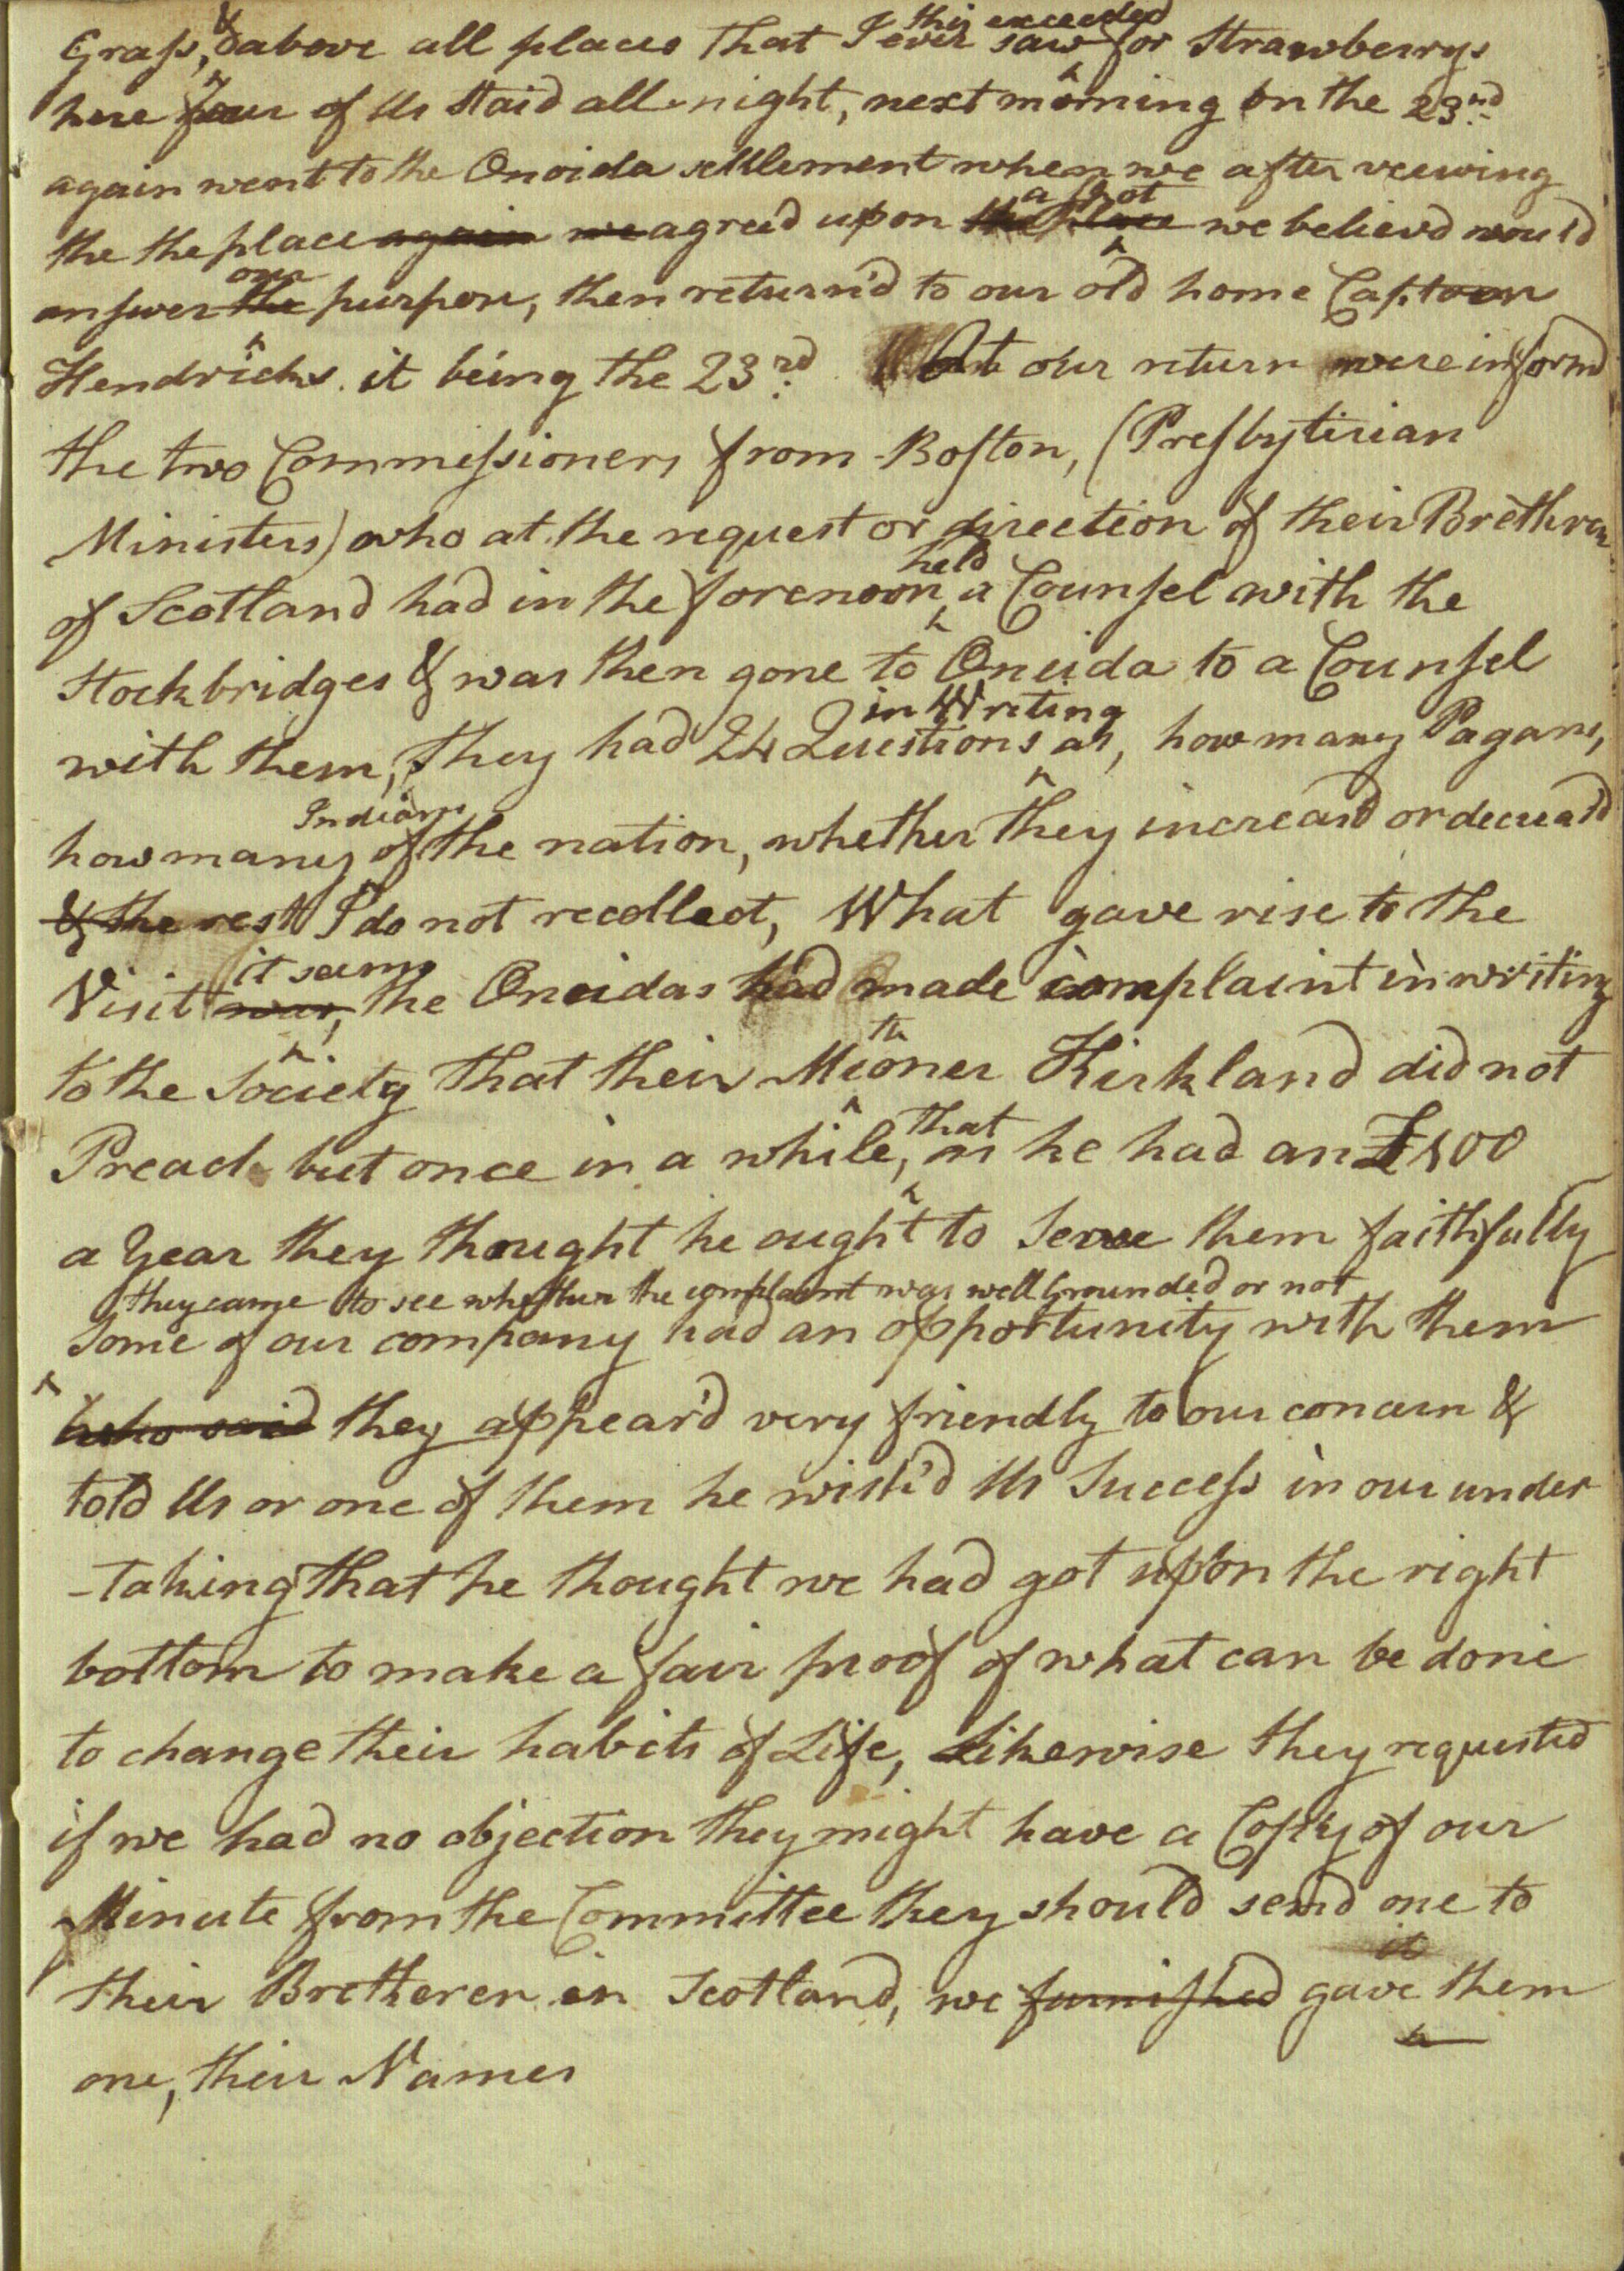 Grass, & above all places that I ever saw this exceeded for Strawberrys
here four of Us Staid all night, next morning on the 23nd
again went to the Onoida settlement when we after veewing
the the place again we agreed upon the place a spot we believd would
answer the our purpose, then return'd to our old home Captoon
Hendricks. it being the 23rd. At our return were inform'd
the two Commissioners from Boston, (Presbytirian
Ministers) who at the request or direction of their Brethren
of Scotland had in the forenoon held a Counsel with the
Stockbridges & was then gone to Oneida to a Counsel
with them, they had 24 Questions in Writing as, how many Pagans,
how many Indians of the nation, whether they increasd or decreasd
& the rest I do not recollect, What gave rise to the
Visit was, it seems the Oneidas had made complaint in writing
to the Society that their Kirkland did not
Preach but once in a while, that as he had an £100
a Year they thought he ought to Serve them faithfully
they came to see whether the complaint was well Grounded or not
Some of our company had an opportunity with them
who said they appear'd very friendly to our concern &
told Us or one of them he wish'd Us Success in our under
-taking that he thought we had got upon the right
bottom to make a fair proof of what can be done
to change their habits of Life, Likewise they requested
if we had no objection they might have a Copy of our
Minute from the Committee they should send one to
their Bretheren in Scotland, we furnished gave it them
one, their Names